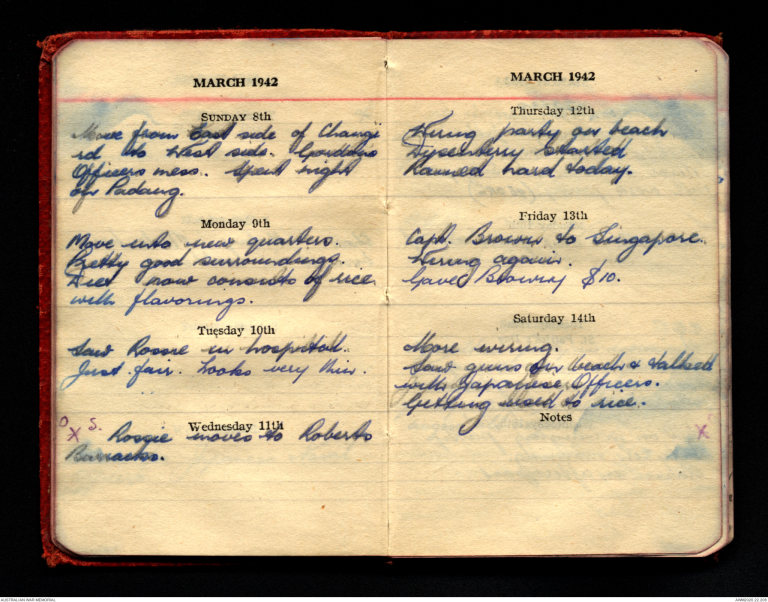 MARCH 1942
SUNDAY 8th
Move from East side of Chang
id to West side. Gordons
Officers mess. Spent night
on Padang.
Monday 9th
Move into new quarters.
Pretty good surroundings.
Diet now consists of rice
with flavorings.
Tuesday 10th
Saw Rossie in hospital.
Just fair. Looks very thin.
Wednesday 11th
O X S.
Rossie moves to Roberts
Barracks.
MARCH 1942
Thursday 12th
Wiring party on beach
Dysentery started
Rained hard today.
Friday 13th
Capt. Brown to Singapore.
Wiring again.
Gave $10.
Saturday 14th
More wiring.
Saw guns on beach & talked
with Japanese Officers.
Getting used to rice.
Notes
X
AUSTRALIAN WAR MEMORIAL